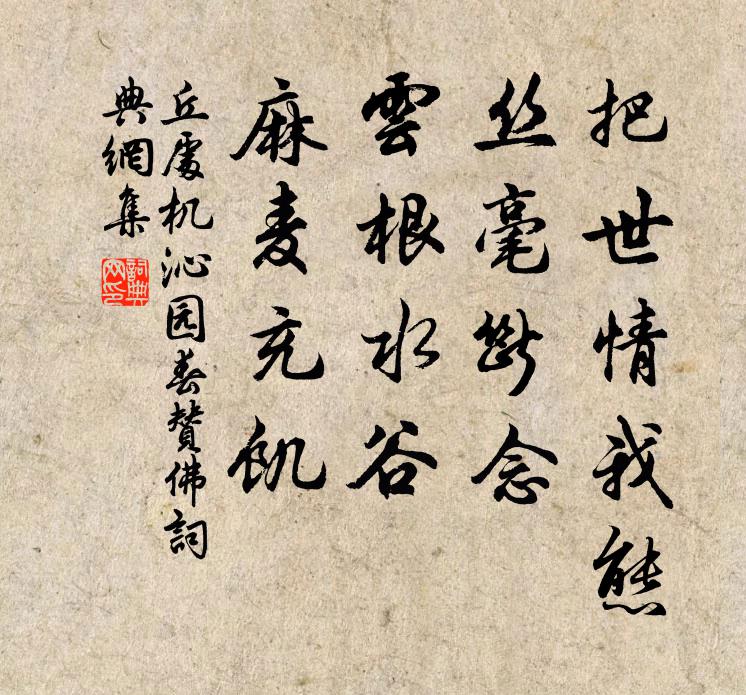 把世情我態
丝毫斷念
雲根水谷
麻麦充飢
丘處机沁园春赞佛詞
典網集
詞典
网印